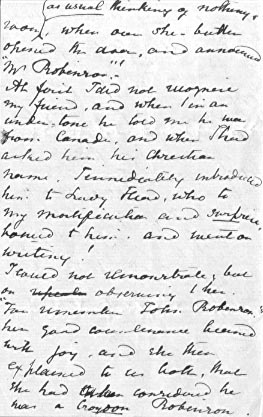 as usual thinking of nothing &
room, when our she-butler
opened the door, and announced
"Mr Robinson"!
At first I did not recognise
my friend, and when in an
under-tone he told me he was
from Canada, and when I had
asked him his Christian
name. I immediately introduced
him to Lady Head, who to
my mortification and surprise,
bowed to him and went on
writing!
I could not remonstrate, but
on observing to her
"You remember John Robinson"
her good countenance beamed
with joy, and she then
explained to us both, that
she had considered he
was a Croydon Robinson.